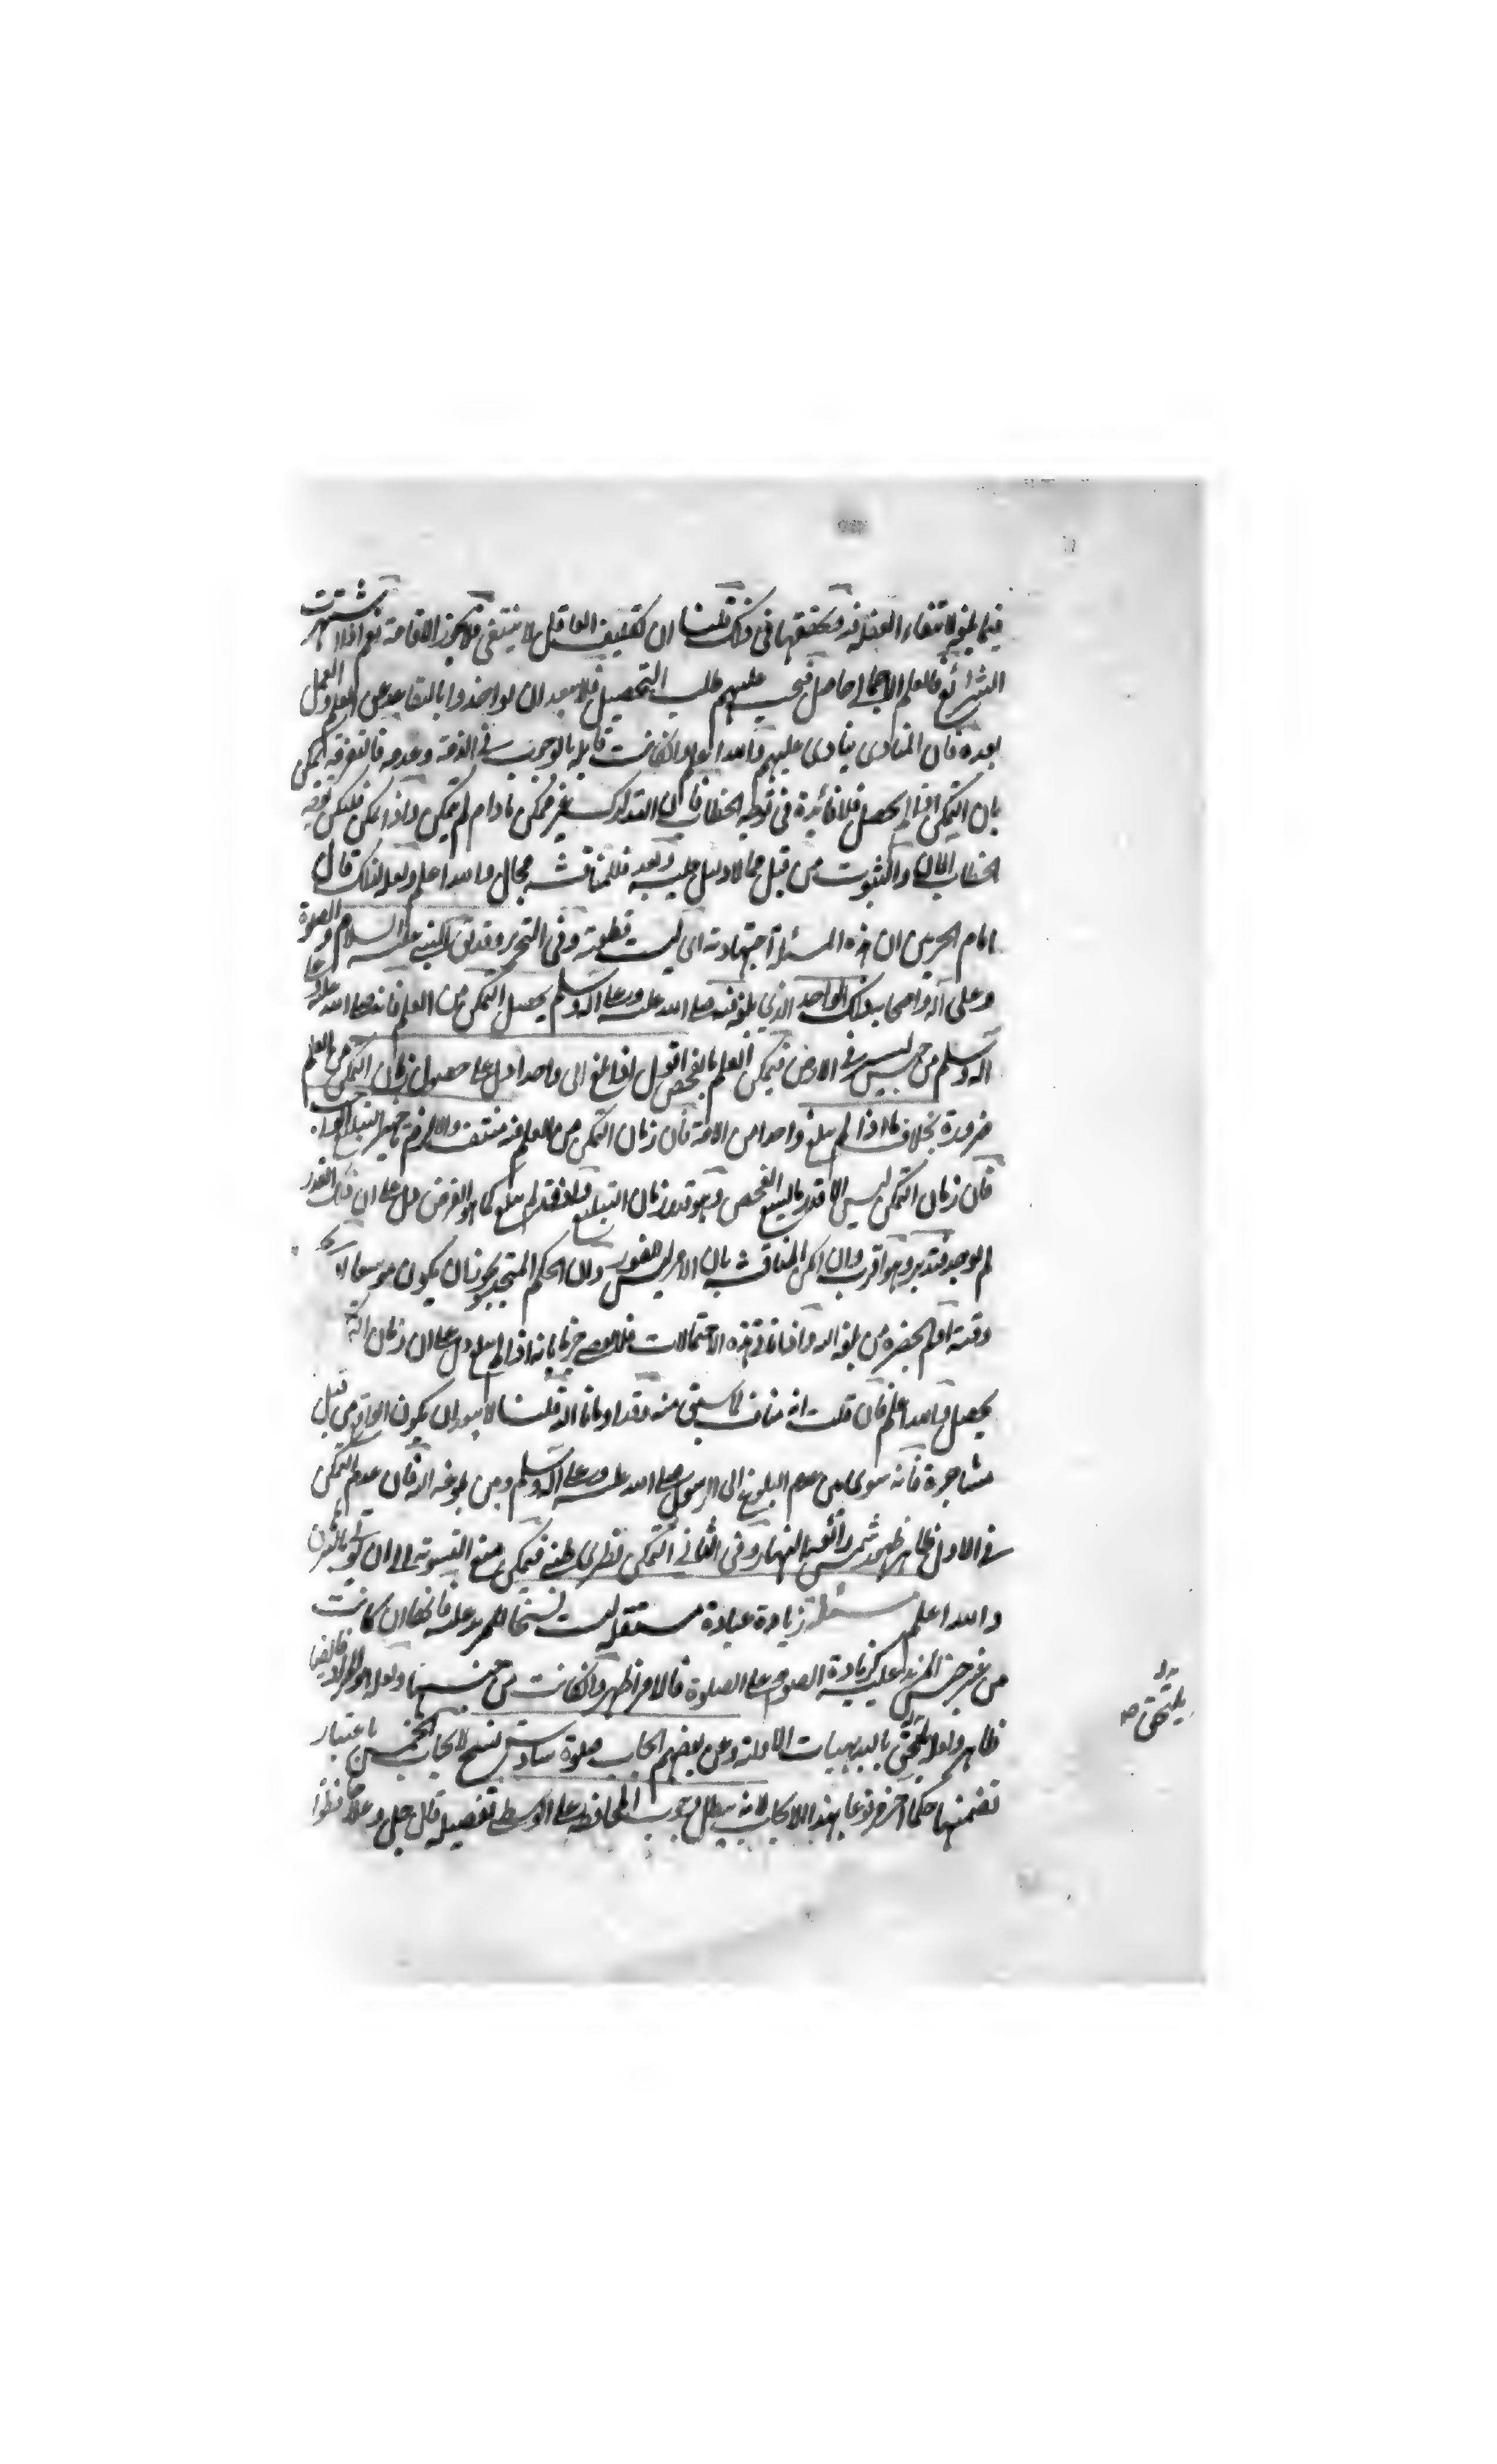 فيما بلغه لانتفاء الغفلة فيه وتحققها في ذلك قلنا ان تكليف الغافل لا ينتفي فلا يجوز الاقامة نعم اذا اشتهرت
الشرائع فالعلم الاجمالي حاصل فيجب عليهم طلب التحصيل فلا يبعد ان يواخذوا بالتقاعد عن العلم والعمل
بعده فان المنادي ينادي عليهم والله اعلم وان كانت قابلة بالوجوب في الذمة وعدمه فالتفرقة ممكن
بان التمكن اذا لم يحصل فلا فائدة في توجه الخطاب فان التدارك غير ممكن ما دام لم يتمكن واذا تمكن فليكن توجه
الخطاب الان والثبوت من قبل مما لا دليل عليه وبعد فللمناقشة مجال والله اعلم ولعل لذلك قال
امام الحرمين ان هذه المسئلة اجتهادية اي ليست قطعية وفي التحرير وقد بلغ النبي عليه السلام والصلوة
وعلى آله واصحابه ذلك الواحد الذي بلغ فيه صلى الله عليه وعلى آله وسلم يحصل التمكن من العلم فانه صلى الله عليه وعلى
آله وسلم من حين ليس في الارض فيمكن العلم بالفحص اقول اذا بلغ الى واحد دل على حصول زمان التمكن من العلم
ضرورة بخلاف ما اذا لم يبلغ واحدا من الامة فان زمان التمكن من العلم فيه منتف والا لزم تاخير التبليغ الواجب
فان زمان التمكن ليس الا قدر ما يسع الفحص وهو قدر زمان التبليغ ولو فقد لم يبلغ كما هو الفرض دل على ان ذلك القدر
لم يوجد فتدبر وهو اقرب وان امكن المناقشة بان الامر ليس للفور ولان الحكم المتجدد يجوز ان يكون موسعا
وقته او لم يحضره من بلغه اليه واذا قامت هذه الاحتمالات فلا يصح جزما بانه اذا لم يبلغ دل على ان زمان التمكن
يحصل والله اعلم فان قلت انه مناف لما سبق منه وقد اومانا اليه قلنا لا يبعد ان يكون الواقع من قبيل
مشاجرة فانه سوى بين عدم البلوغ الى الرسول صلى الله عليه وعلى آله وسلم وبين بلوغه اليه فان عدم التمكن
في الاول ظاهر ظهور شمس رائعة النهار وفي الثاني التمكن نظري ظني فيمكن منع التسوية الى ان
والله اعلم مسئلة زيادة عبادة مستقلة ليست نسخا للمزيد عليه فانها ان كانت
من غير جنس المزيد عليه كزيادة الصوم على الصلوة فالامر اظهر وان كانت من جنسها ولعله هو المراد فايضا
ظاهر ولعله يلتحق بالبديهيات الاولية وعن بعضهم ايجاب صلوة سادسة نسخ لايجاب الخمس باعتبار
تضمنها حكما اخر مرفوعا بهذا الايجاب لانه يبطل وجوب المحافظة على الوسطى تفصيله قال جل وعلا حافظوا
يلتحق صح